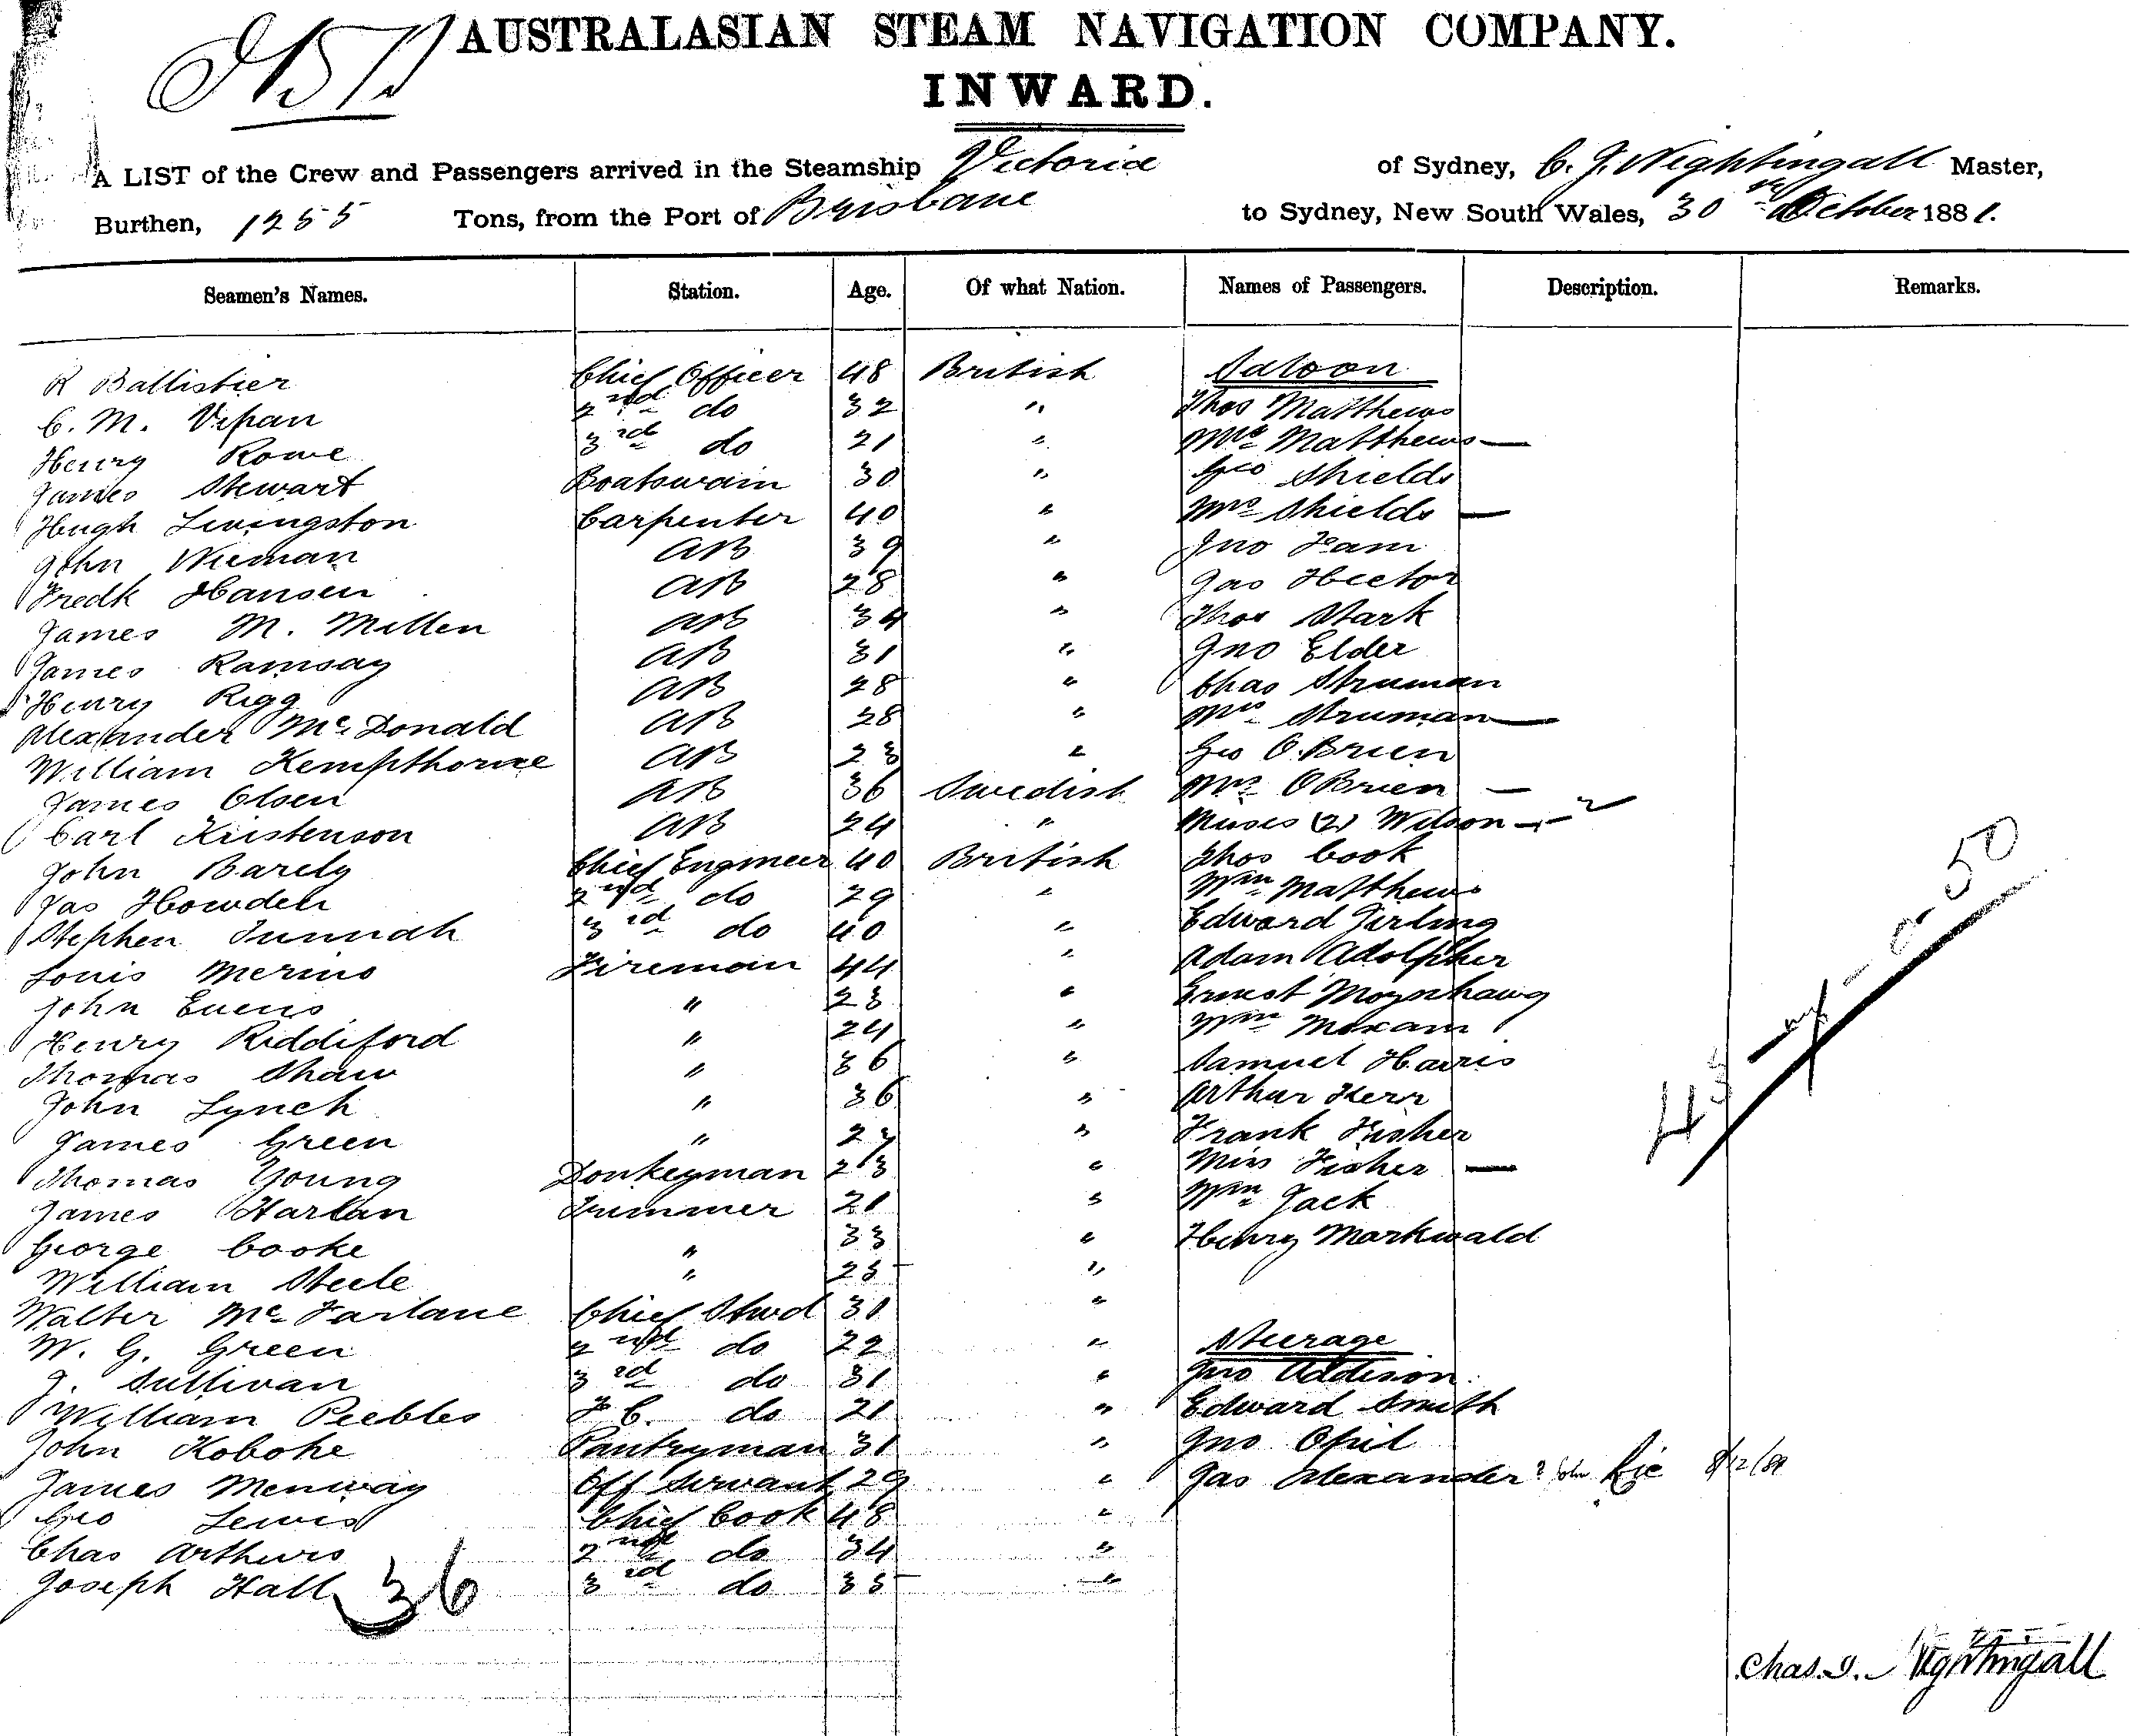 AUSTRALASIAN STEAM NAVIGATION COMPANY.
INWARD.
A LIST of the Crew and Passengers arrived in the Steamship Victoria of Sydney, C. J. Nightingall Master,
Burthen, 1255 Tons, from the Port of Brisbane to Sydney, New South Wales, 30 October 1881.
Seamen's Names. Station. Age. Of what Nation. Names of Passengers. Description. Remarks.
R Ballistier Chief Officer 48 British Saloon
C. M. Vipan 2nd do 32 " Thos Matthews
Henry Rowe 3rd do 21 " Mrs Matthews —
James Stewart Boatswain 30 " Geo Shields
Hugh Livingston Carpenter 40 " Mrs Shields —
John Wieman AB 39 " Jno Fam
Fredk Hansen AB 28 " Jas Hector
James M. Millen AB 34 " Thos Stark
James Ramsay AB 31 " Jno Elder
Henry Rigg AB 28 " Chas Struman
Alexander McDonald AB 28 " Mrs Struman —
William Kempthorne AB 23 " Geo O.Brien
James Olsen AB 36 Swedish Mrs OBrien —
Carl Kristenson AB 24 " Misses (2) Wilson — 2
John Barely Chief Engineer 40 British Thos Cook
Jas Howden 2nd do 29 " Wm Matthews
Stephen Tunnah 3rd do 40 " Edward Girling
Louis Merino Fireman 44 " Adam Adolpher
John Evens " 23 " Ernest
Henry Riddiford " 24 " Wm Moxam
Thomas Shaw " 36 " Samuel Harris
John Lynch " 36 " Arthur Kerr
James Green " 27 " Frank Fisher
Thomas Young Donkeyman 23 " Miss Fisher —
James Harlan Trimmer 21 " Wm Jack
George Cooke " 33 " Henry Markwald
William Steele " 25 "
Walter McFarlane Chief Stwd 31 "
W. G. Green 2nd do 22 " Steerage
J. Sullivan 3rd do 31 " Jno Addison
William Peebles F C. do 21 " Edward Smith
John Kobohe Pantryman 31 " Jno Opil
James Menway Off Servant 29 " Jas Alexander
Geo Lewis Chief Cook 48 "
Chas Arthurs 2nd do 34 "
Joseph Hall 3rd do 35 "
36
50
Chas. J. Nightingall